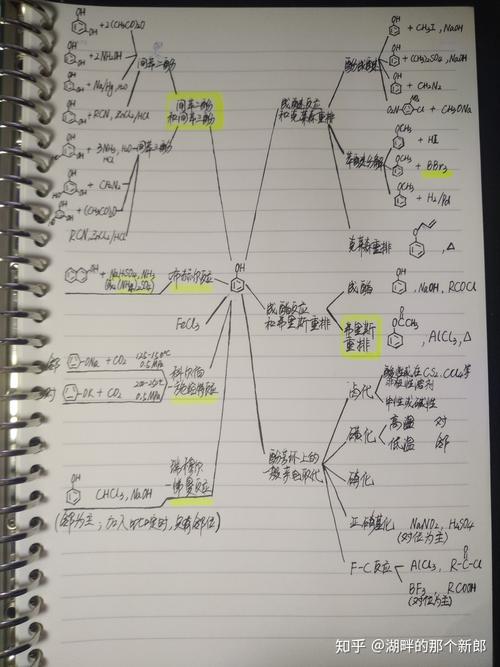 OH
OH + 2(CH3CO)2O
OH
OH + 2NH2OH
间苯二酚
OH + Na/Hg, H2O
OH + RCN, ZnCl2/HCl
间苯二酚
和间苯三酚
OH + 3NH3, H2O
HCl
间苯三酚
OH + CH2N2
HO OH + (CH3CO)2O
RCN, ZnCl2/HCl
OH + NaHSO3, NH3
布赫尔反应
FeCl3
邻
ONa + CO2 125-150℃
0.5MPa
科尔伯
-施密特反应
对
OK + CO2
0.5MPa
OH
CHCl3, NaOH
瑞穆尔
-悌曼反应
OH
成醚反应
和克莱森重排
酚成醚
OH + CH3I, NaOH
OH + (CH3)2SO4, NaOH
OH + CH2N2
O2N Cl + CH3ONa
苯醚分解
OCH3 + HI
OCH3 + BBr3
OCH3 + H2/Pd
克莱森重排
O , △
成酯反应
和弗里斯重排
成酯
OH , NaOH, RCOCl
弗里斯
重排
O
OCCH3 , AlCl3, △
酚芳环上的
一般亲电取代
卤代
酸性或在CS2, CCl4等
非极性溶剂
中性或碱性
磺化
高温 对
低温 邻
硝化
亚硝基化
NaNO2, H2SO4
(对位为主)
F-C反应
AlCl3, R-C-Cl
O
BF3, RCOOH
(对位为主)
知乎 @湖畔的那个新郎